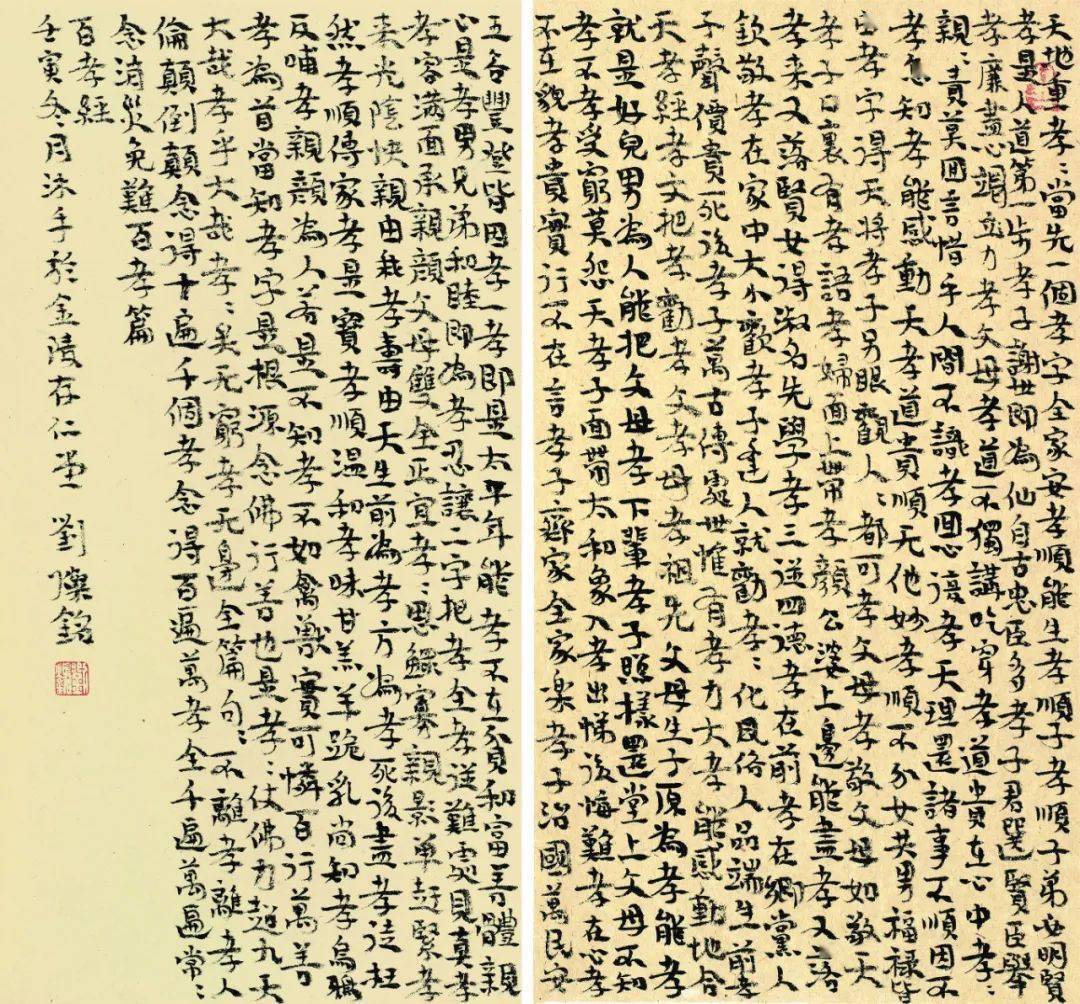 天地重孝〻當先一個孝字全家安孝順能生孝順子孝順子弟必明賢
孝是人道第一步孝子謝世即為仙自古忠臣多孝子君選賢臣舉
孝廉盡心竭力孝父母孝道不獨講吃穿孝道貴在心中孝〻
親〻責莫回言惜乎人間不識孝回心復孝天理還諸事不順因不
孝怎知孝能感動天孝道貴順无他妙孝順不分女共男福祿皆
由孝字得天將孝子另眼觀人〻都可孝父母孝敬父母如敬天
孝子口裏有孝語孝婦面上帶孝顏公婆上邊能盡孝又落
孝来又落賢女得淑名先學孝三從四德孝在前孝在鄉黨人
欽敬孝在家中大小歡孝子逢人就勸孝〻化風俗人品端生前孝
子聲價貴死後孝子萬古傳處世惟有孝力大孝能感動地合
天孝經孝文把孝勸孝父孝母孝祖先父母生子原為孝能孝
就是好兒男為人能把父母孝下輩孝子照樣還堂上父母不知
孝不孝受窮莫怨天孝子面帶太和象入孝出悌後悔難孝在心孝
不在貌孝貴實行不在言孝子齊家全家樂孝子治國萬民安
五谷豐登皆因孝一孝即是太平年能孝不在貧和富善體親
心是孝男兄弟和睦即為孝忍讓二字把孝全孝從難處見真孝
孝容滿面承親顏父母雙全正宜孝〻思鰥寡親影單趕緊孝
来光陰快親由我孝壽由天生前為孝方為孝死後盡孝徒枉
然孝順傳家孝是寶孝順温和孝味甘羔羊跪乳尚知孝烏鴉
反哺孝親顏為人若是不知孝不如禽獸實可憐百行萬善
孝為首當知孝字是根源念佛行善也是孝〻仗佛力超九天
大哉孝乎大哉孝〻矣无窮孝无邊全篇句〻不離孝離孝人
倫顛倒顛念得十遍千個孝念得百遍萬孝全千遍萬遍常〻
念消災免難百孝篇
百孝經
壬寅冬月沐手於金陵存仁堂 劉燦銘